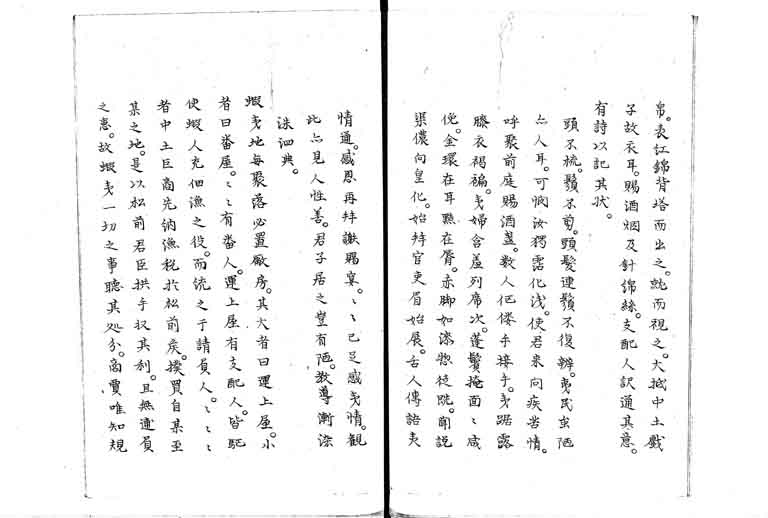 帛。表江錦背塔而出之。就而視之。大抵中土戲
子故衣耳。賜酒烟及針綿絲。支配人訳通其意。
有詩以記其状。
頭不梳。鬚不剪。頭髮連鬚不復辮。夷民虫陋
亦人耳。可憫汝獨霑化浅。使君来向疾苦情。
呼聚前庭賜酒盞。数人伛偻手接手。夷踞露
膝衣褐褊。夷婦含羞列席次。蓬鬢掩面〻咸
俛。金環在耳黥在脣。赤脚如漆惣徒跣。聞説
渠儂向皇化。始拜官吏眉始展。舌人傳語夷
情通。感恩再拜謝賜宴。〻〻已足感夷情。観
此亦見人性善。君子居之豈有陋。教導漸深
洙泗典。
蝦夷地每聚落必置廠房。其大者曰運上屋。小
者曰番屋。〻〻有番人。運上屋有支配人。皆駈
使蝦人充佃漁之役。而統之于請負人。〻〻〻
者中土巨商先納漁税於松前矦。撲買自某至
某之地。是以松前君臣拱手収其利。且無逋負
之患。故蝦夷一切之事聽其処分。商賈唯知規